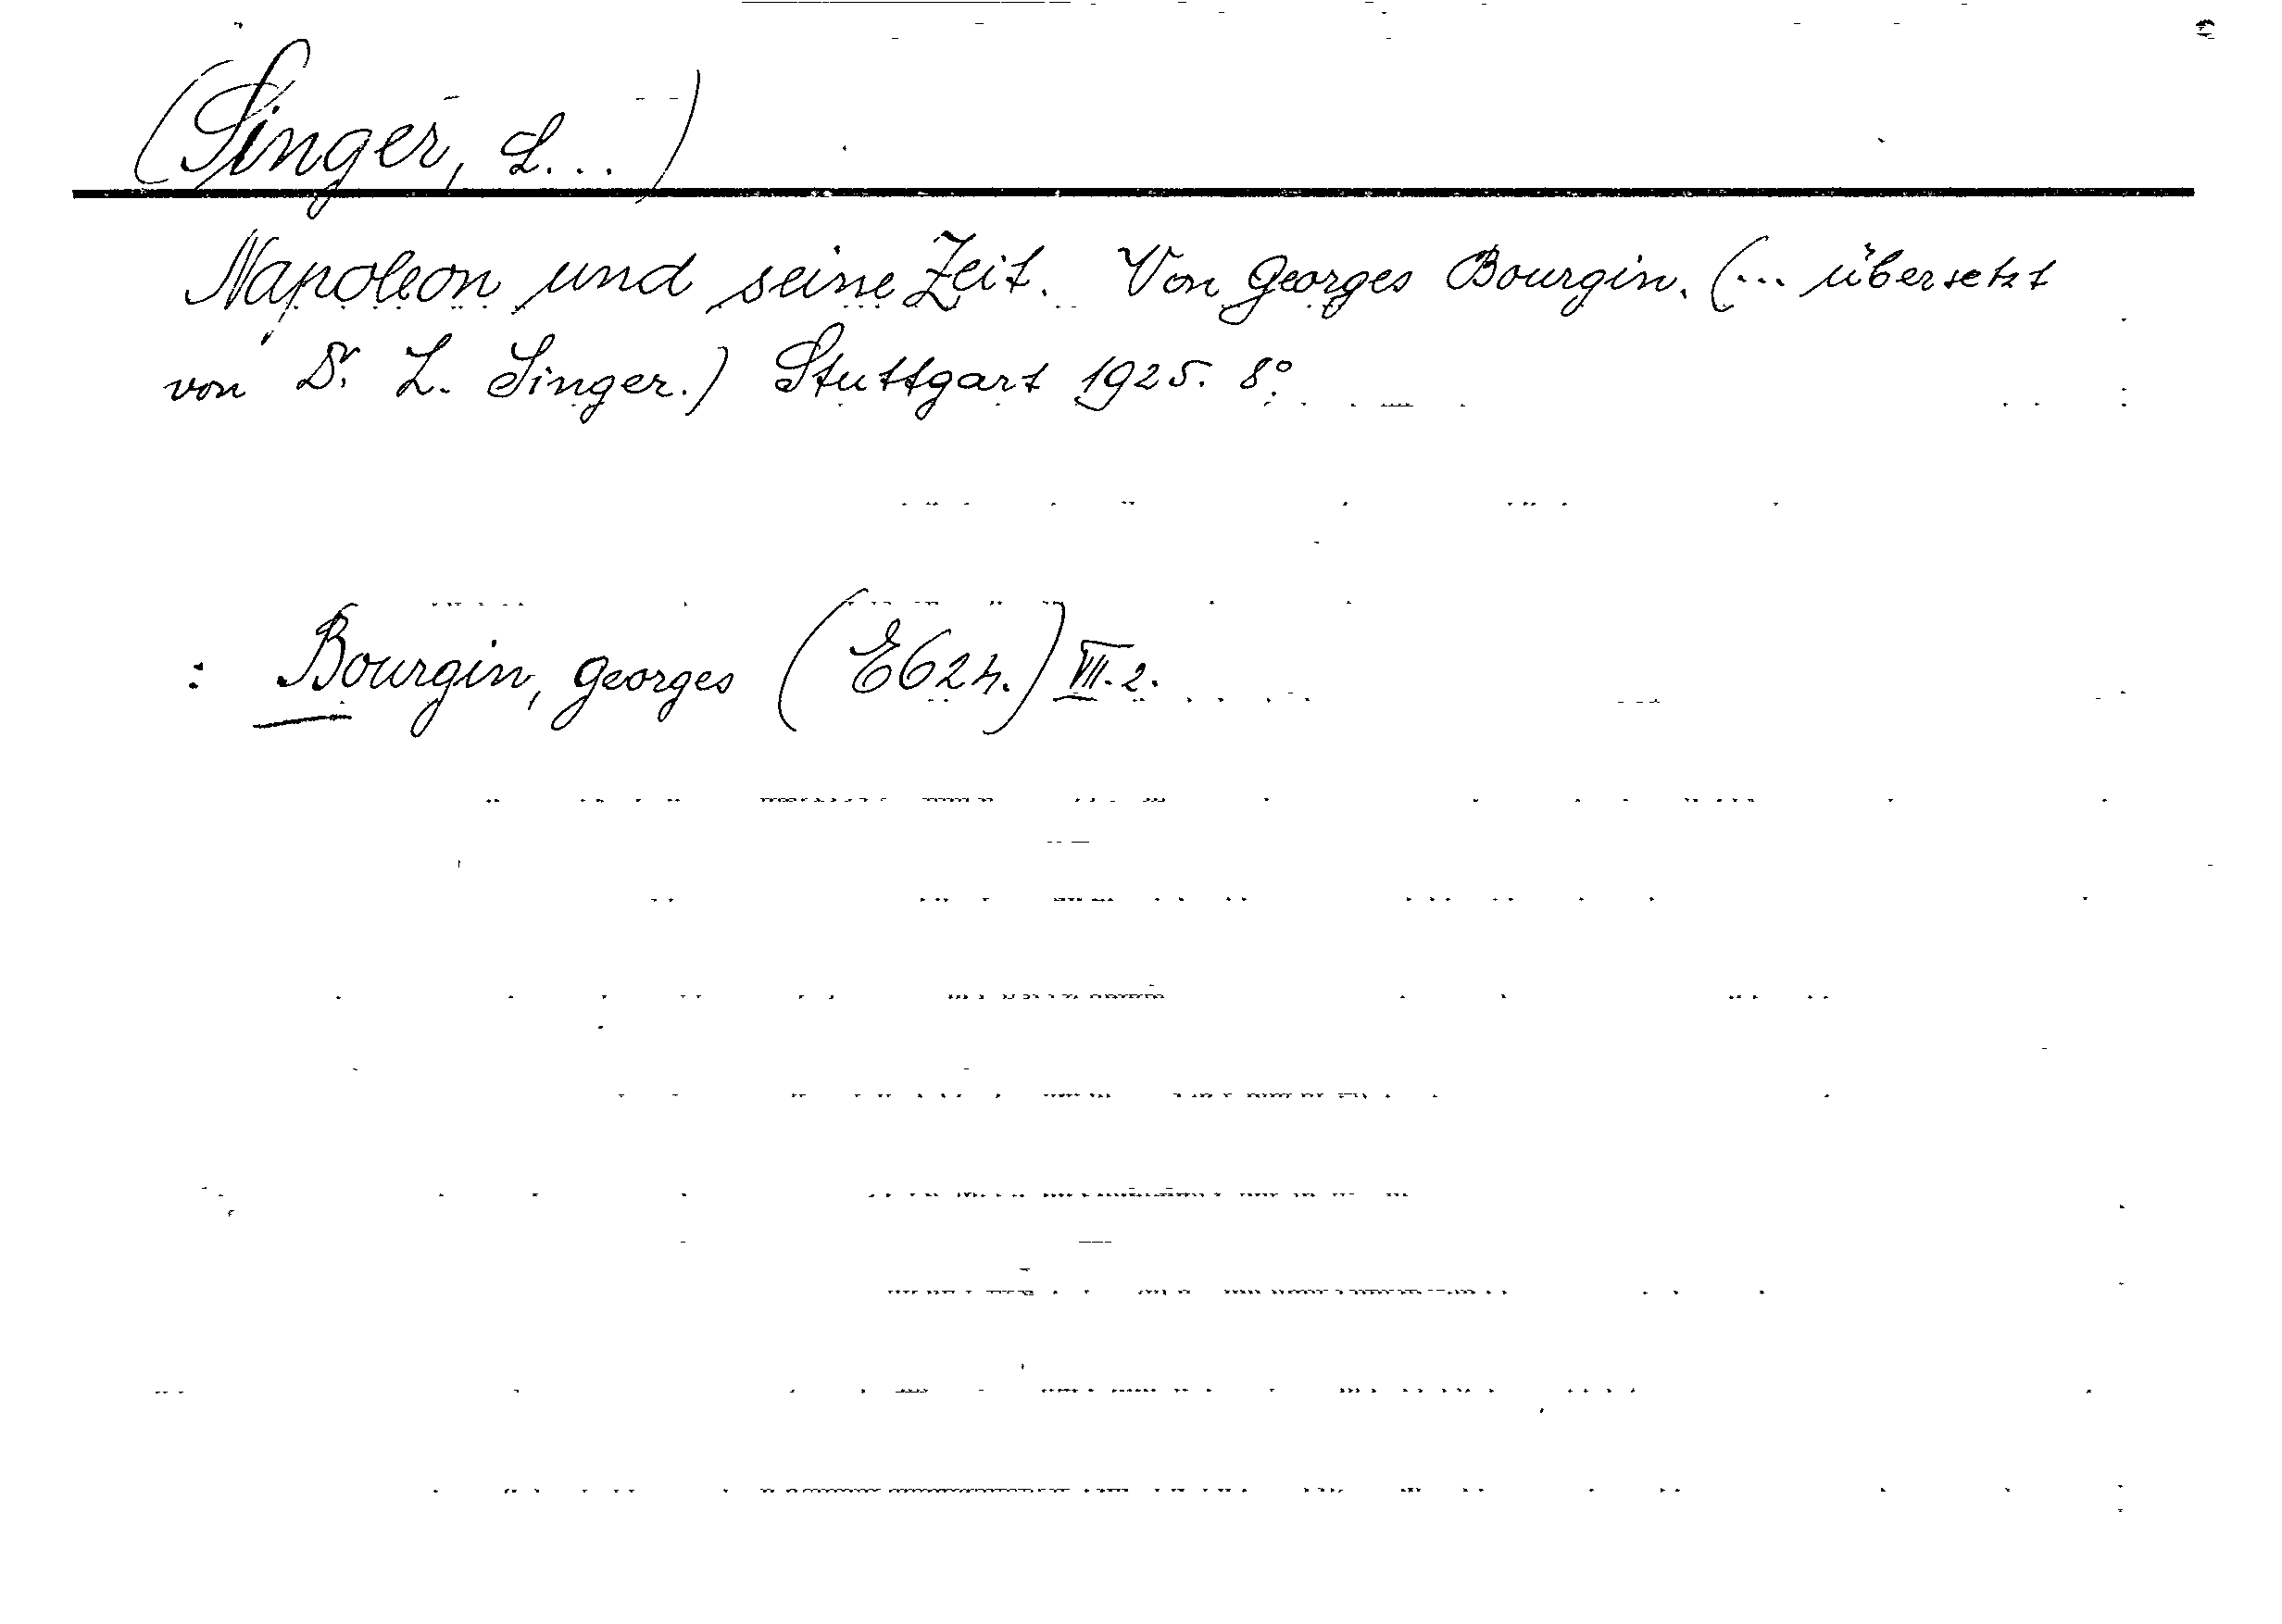 (Singer, L...)
Napoleon und seine Zeit. Von Georges Bourgin. (... übersetzt
von Dr. L. Singer.) Stuttgart 1925. 8°.
: Bourgin, Georges (E62h.) VII.2.